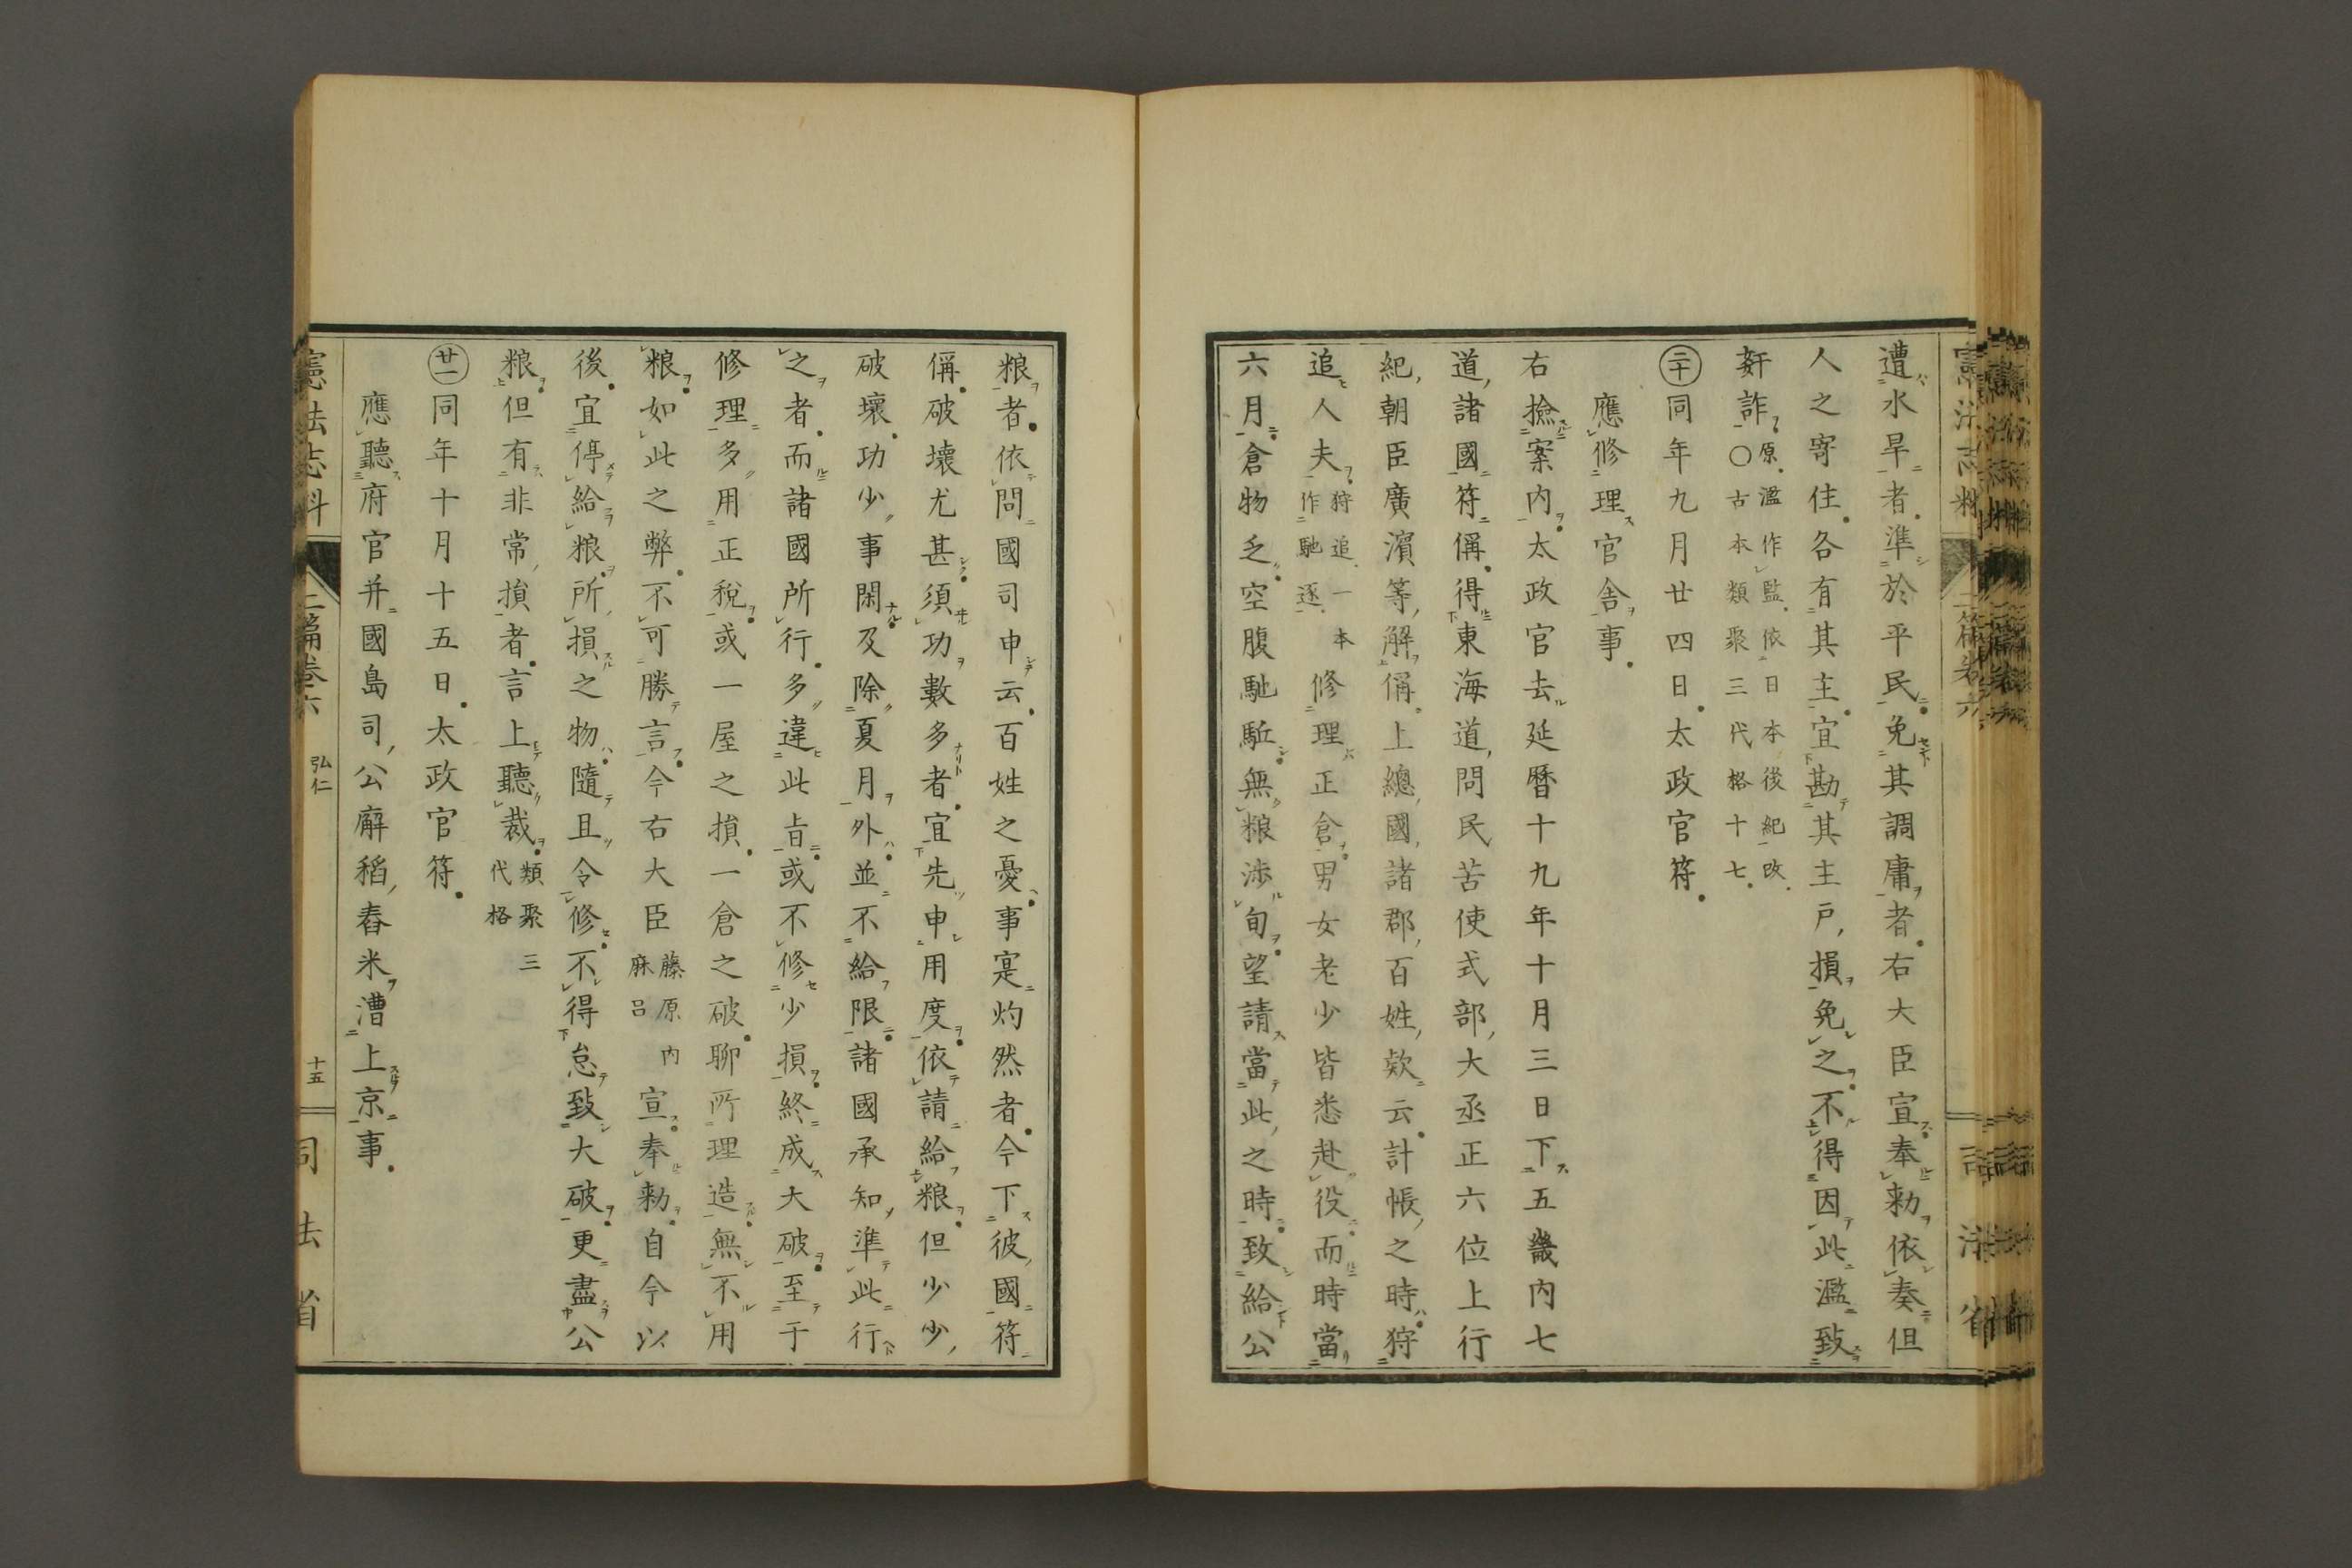 遭水旱者準於平民免其調庸者右大臣宣奉勅依奏但
人之寄住各有其主宜勘其主戸損免之不得因此濫致
姧詐
原濫作監依日本後紀改
○古本類聚三代格十七
二十同年九月廿四日太政官符
應修理官舎事
右撿案内太政官去延暦十九年十月三日下五畿内七
道諸國符偁得東海道問民苦使式部大丞正六位上行
紀朝臣廣濱等解偁上總國諸郡百姓欵云計帳之時狩
追人夫
狩追一本
作馳逐
修理正倉男女老少皆悉赴役而時當
六月倉物乏空腹馳駈無粮渉旬望請當此之時致給公
粮者依問國司申云百姓之憂事寔灼然者今下彼國符
偁破壞尤甚須功數多者宜先申用度依請給粮但少少
破壞功少事閑及除夏月外並不給限諸國承知準此行
之者而諸國所行多違此旨或不修少損終成大破至于
修理多用正税或一屋之損一倉之破聊所理造無不用
粮如此之弊不可勝言今右大臣
藤原内
麻呂
宣奉勅自今以
後宜停給粮所損之物隨且令修不得怠致大破更盡公
粮但有非常損者言上聽裁
類聚三
代格
廿一同年十月十五日太政官符
應聽府官并國島司公廨稻舂米漕上京事
憲法志料
二篇巻六
弘仁
十五
司法省